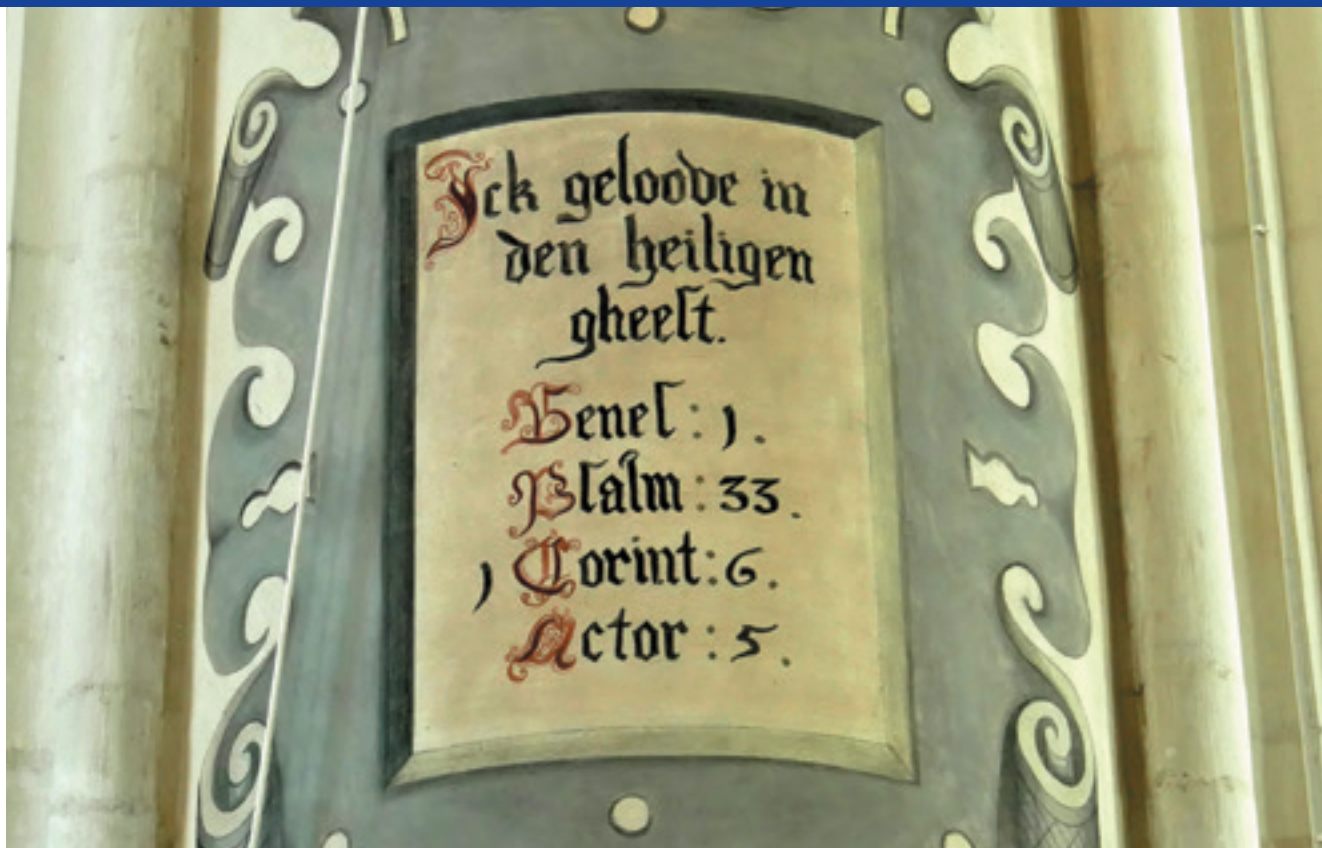 Ick geloove in
den heiligen
gheeſt.
Geneſ: 1.
Pſalm: 33.
1 Corint: 6.
Actor: 5.